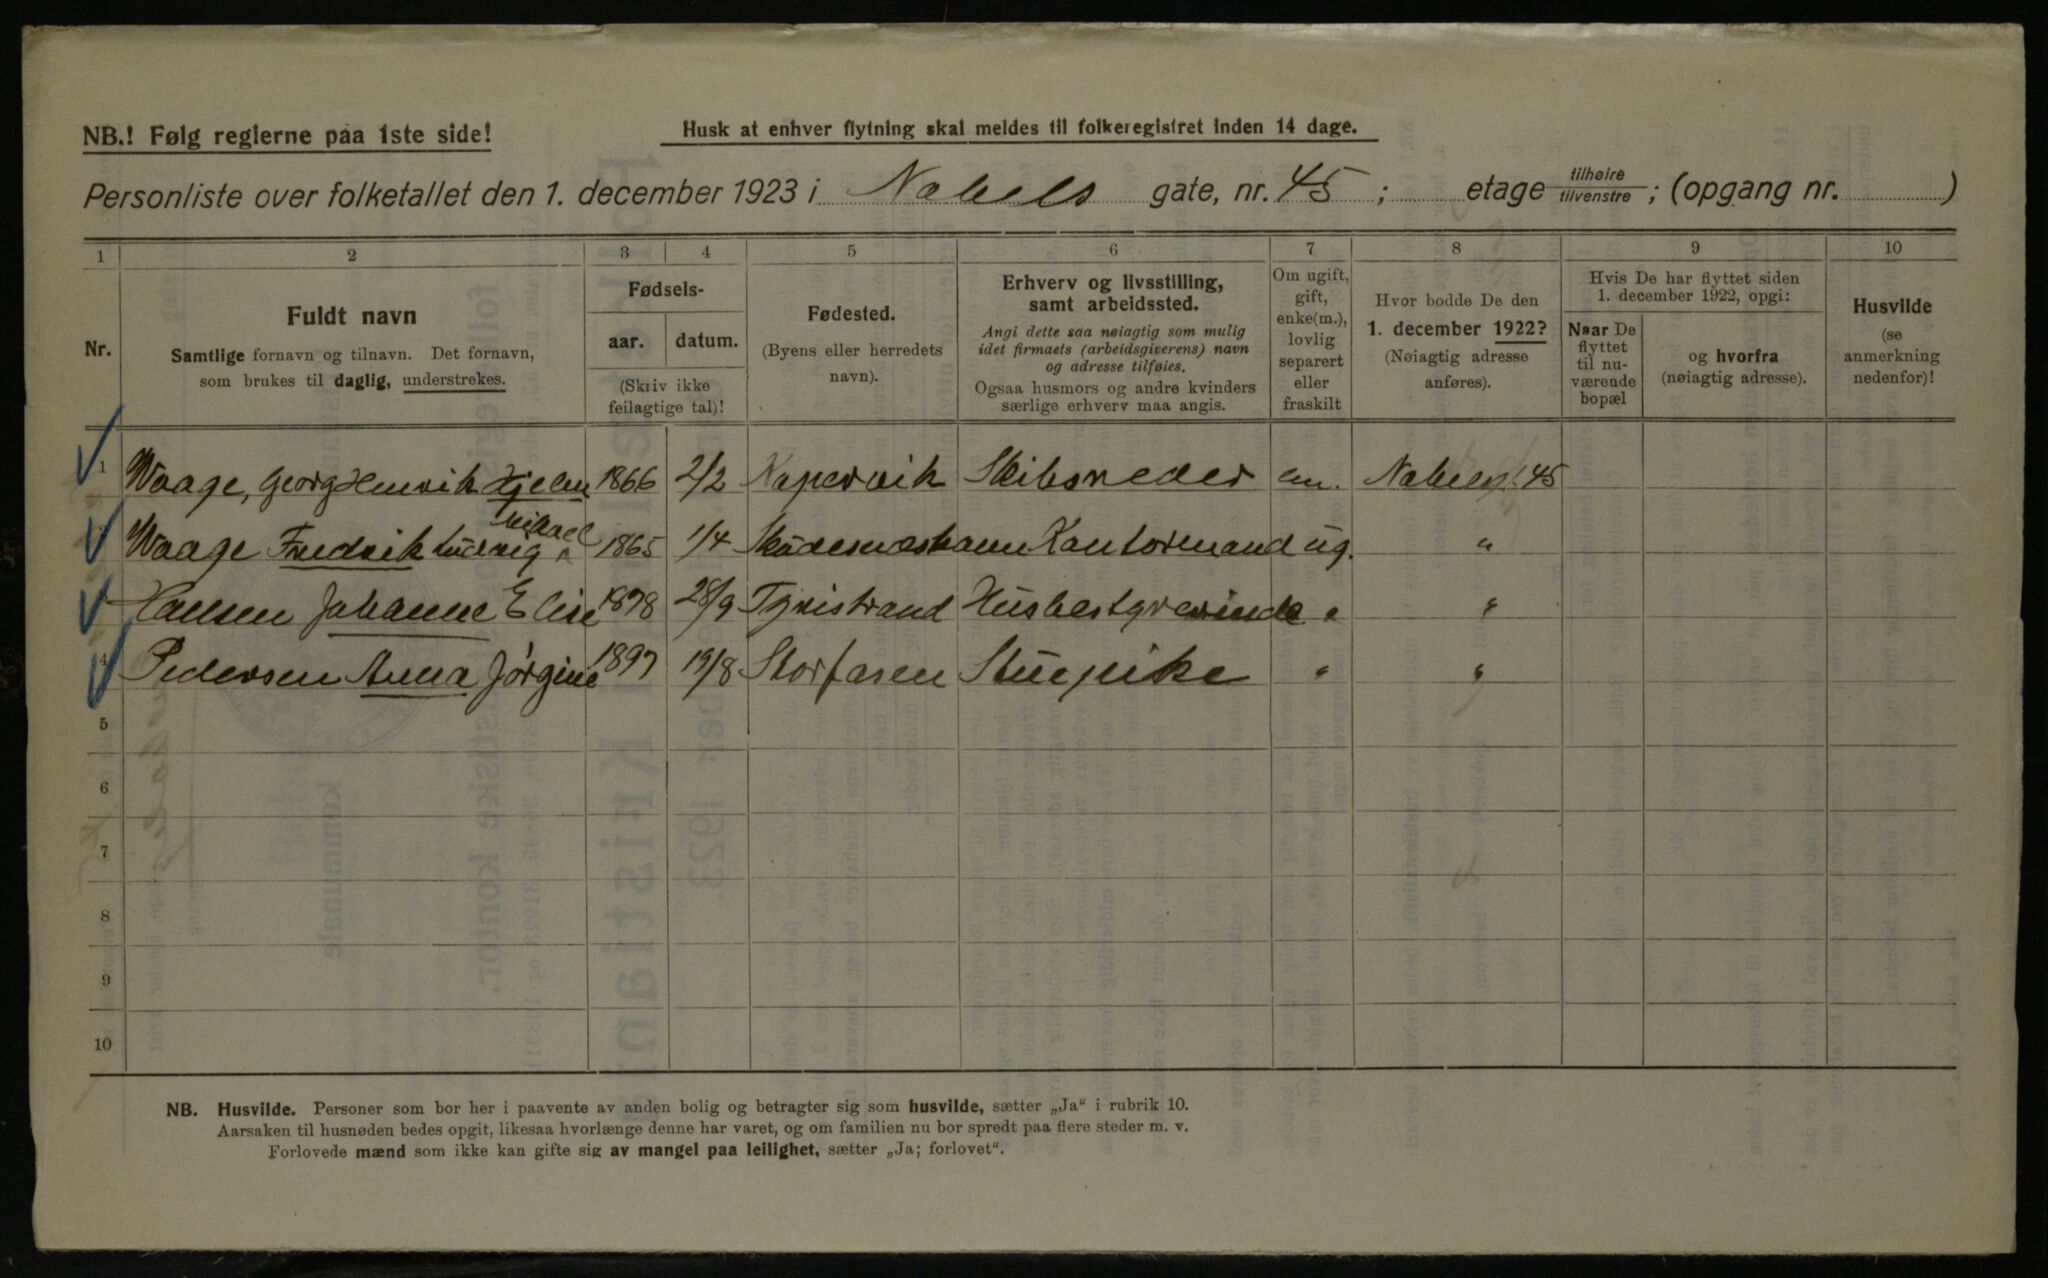 NB.! Følg reglerne paa 1ste side!
Husk at enhver flytning skal meldes til folkeregistret inden 14 dage.
Personliste over folketallet den 1. december 1923 i Nobels gate, nr. 45; etage tilhøire tilvenstre; (opgang nr. )
1 2 3 4 5 6 7 8 9 10
Nr.
Fuldt navn
Samtlige fornavn og tilnavn. Det fornavn,
som brukes til daglig, understrekes.
Fødsels-
aar. datum.
(Skriv ikke
feilagtige tal)!
Fødested.
(Byens eller herredets
navn).
Erhverv og livsstilling,
samt arbeidssted.
Angi dette saa nøiagtig som mulig
idet firmaets (arbeidsgiverens) navn
og adresse tilføies.
Ogsaa husmors og andre kvinders
særlige erhverv maa angis.
Om ugift,
gift,
enke(m.),
lovlig
separert
eller
fraskilt
Hvor bodde De den
1. december 1922?
(Nøiagtig adresse
anføres).
Hvis De har flyttet siden
1. december 1922, opgi:
Naar De
flyttet
til nu-
værende
bopæl
og hvorfra
(nøiagtig adresse).
Husvilde
(se
anmerkning
nedenfor)!
1 Waage, Georg Henrik Hjelm 1866 2/2 Kopervik Skibsreder em. Nobelsgt. 45
Mikael
2 Waage Fredrik Ludvig 1865 1/4 Skudesneshavn Kontormand ug. "
Hansen Johanne Elise 1878 28/9 Tvedestrand Husbestyrerinde " "
4 Pedersen Anna Jørgine 1897 19/8 Storfosen Stuepike " "
5
6
7
8
9
10
NB. Husvilde. Personer som bor her i paavente av anden bolig og betragter sig som husvilde, sætter „Ja“ i rubrik 10.
Aarsaken til husnøden bedes opgit, likesaa hvorlænge denne har varet, og om familien nu bor spredt paa flere steder m. v.
Forlovede mænd som ikke kan gifte sig av mangel paa leilighet, sætter „Ja; forlovet“.